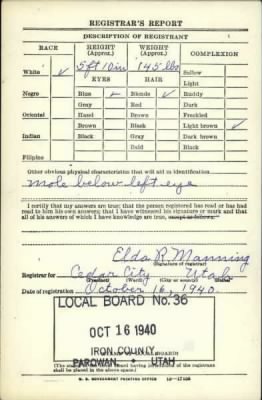 REGISTRAR'S REPORT
DESCRIPTION OF REGISTRANT
RACE HEIGHT (Approx.) WEIGHT (Approx.) COMPLEXION
White ✓ 5 ft 10 in 145 lbs Sallow
EYES HAIR Light
Negro Blue ✓ Blonde ✓ Ruddy
Gray Red Dark
Oriental Hazel Brown Freckled
Brown Black Light brown ✓
Indian Black Gray Dark brown
Bald Black
Filipino
Other obvious physical characteristics that will aid in identification
Mole below left eye
I certify that my answers are true; that the person registered has read or has had
read to him his own answers; that I have witnessed his signature or mark and that
all of his answers of which I have knowledge are true, except as follows:
Elda R. Manning
(Signature of registrar)
Registrar for Cedar City Utah
(Precinct) (Ward) (City or county)
Date of registration October 16, 1940.
LOCAL BOARD No. 36
OCT 16 1940
IRON COUNTY
PAROWAN, UTAH
shall be placed in the above space.)
U. S. GOVERNMENT PRINTING OFFICE